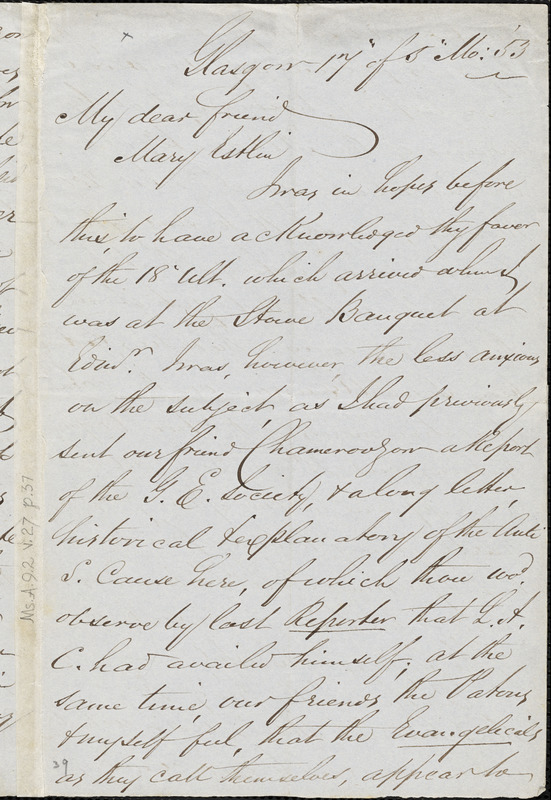 Glasgow 17" of 5" Mo: 53
My dear friend
Mary Estlin
I was in hopes before
this, to have acknowledged thy favor
of the 18" Ult. which arrived when I
was at the Stowe Banquet at
Edinr. I was, however, the less anxious
on the subject, as I had previously
sent our friend Chamerovzow a Report
of the G. E. Society, & a long letter,
historical & explanatory of the Anti
S. Cause here, of which thou wod.
observe by last Reporter that L. A.
C. had availed himself; at the
same time, our friends the Patons
& myself feel, that the Evangelicals
as they call themselves, appear to
39
Ms.A.9.2 v.27 p.37